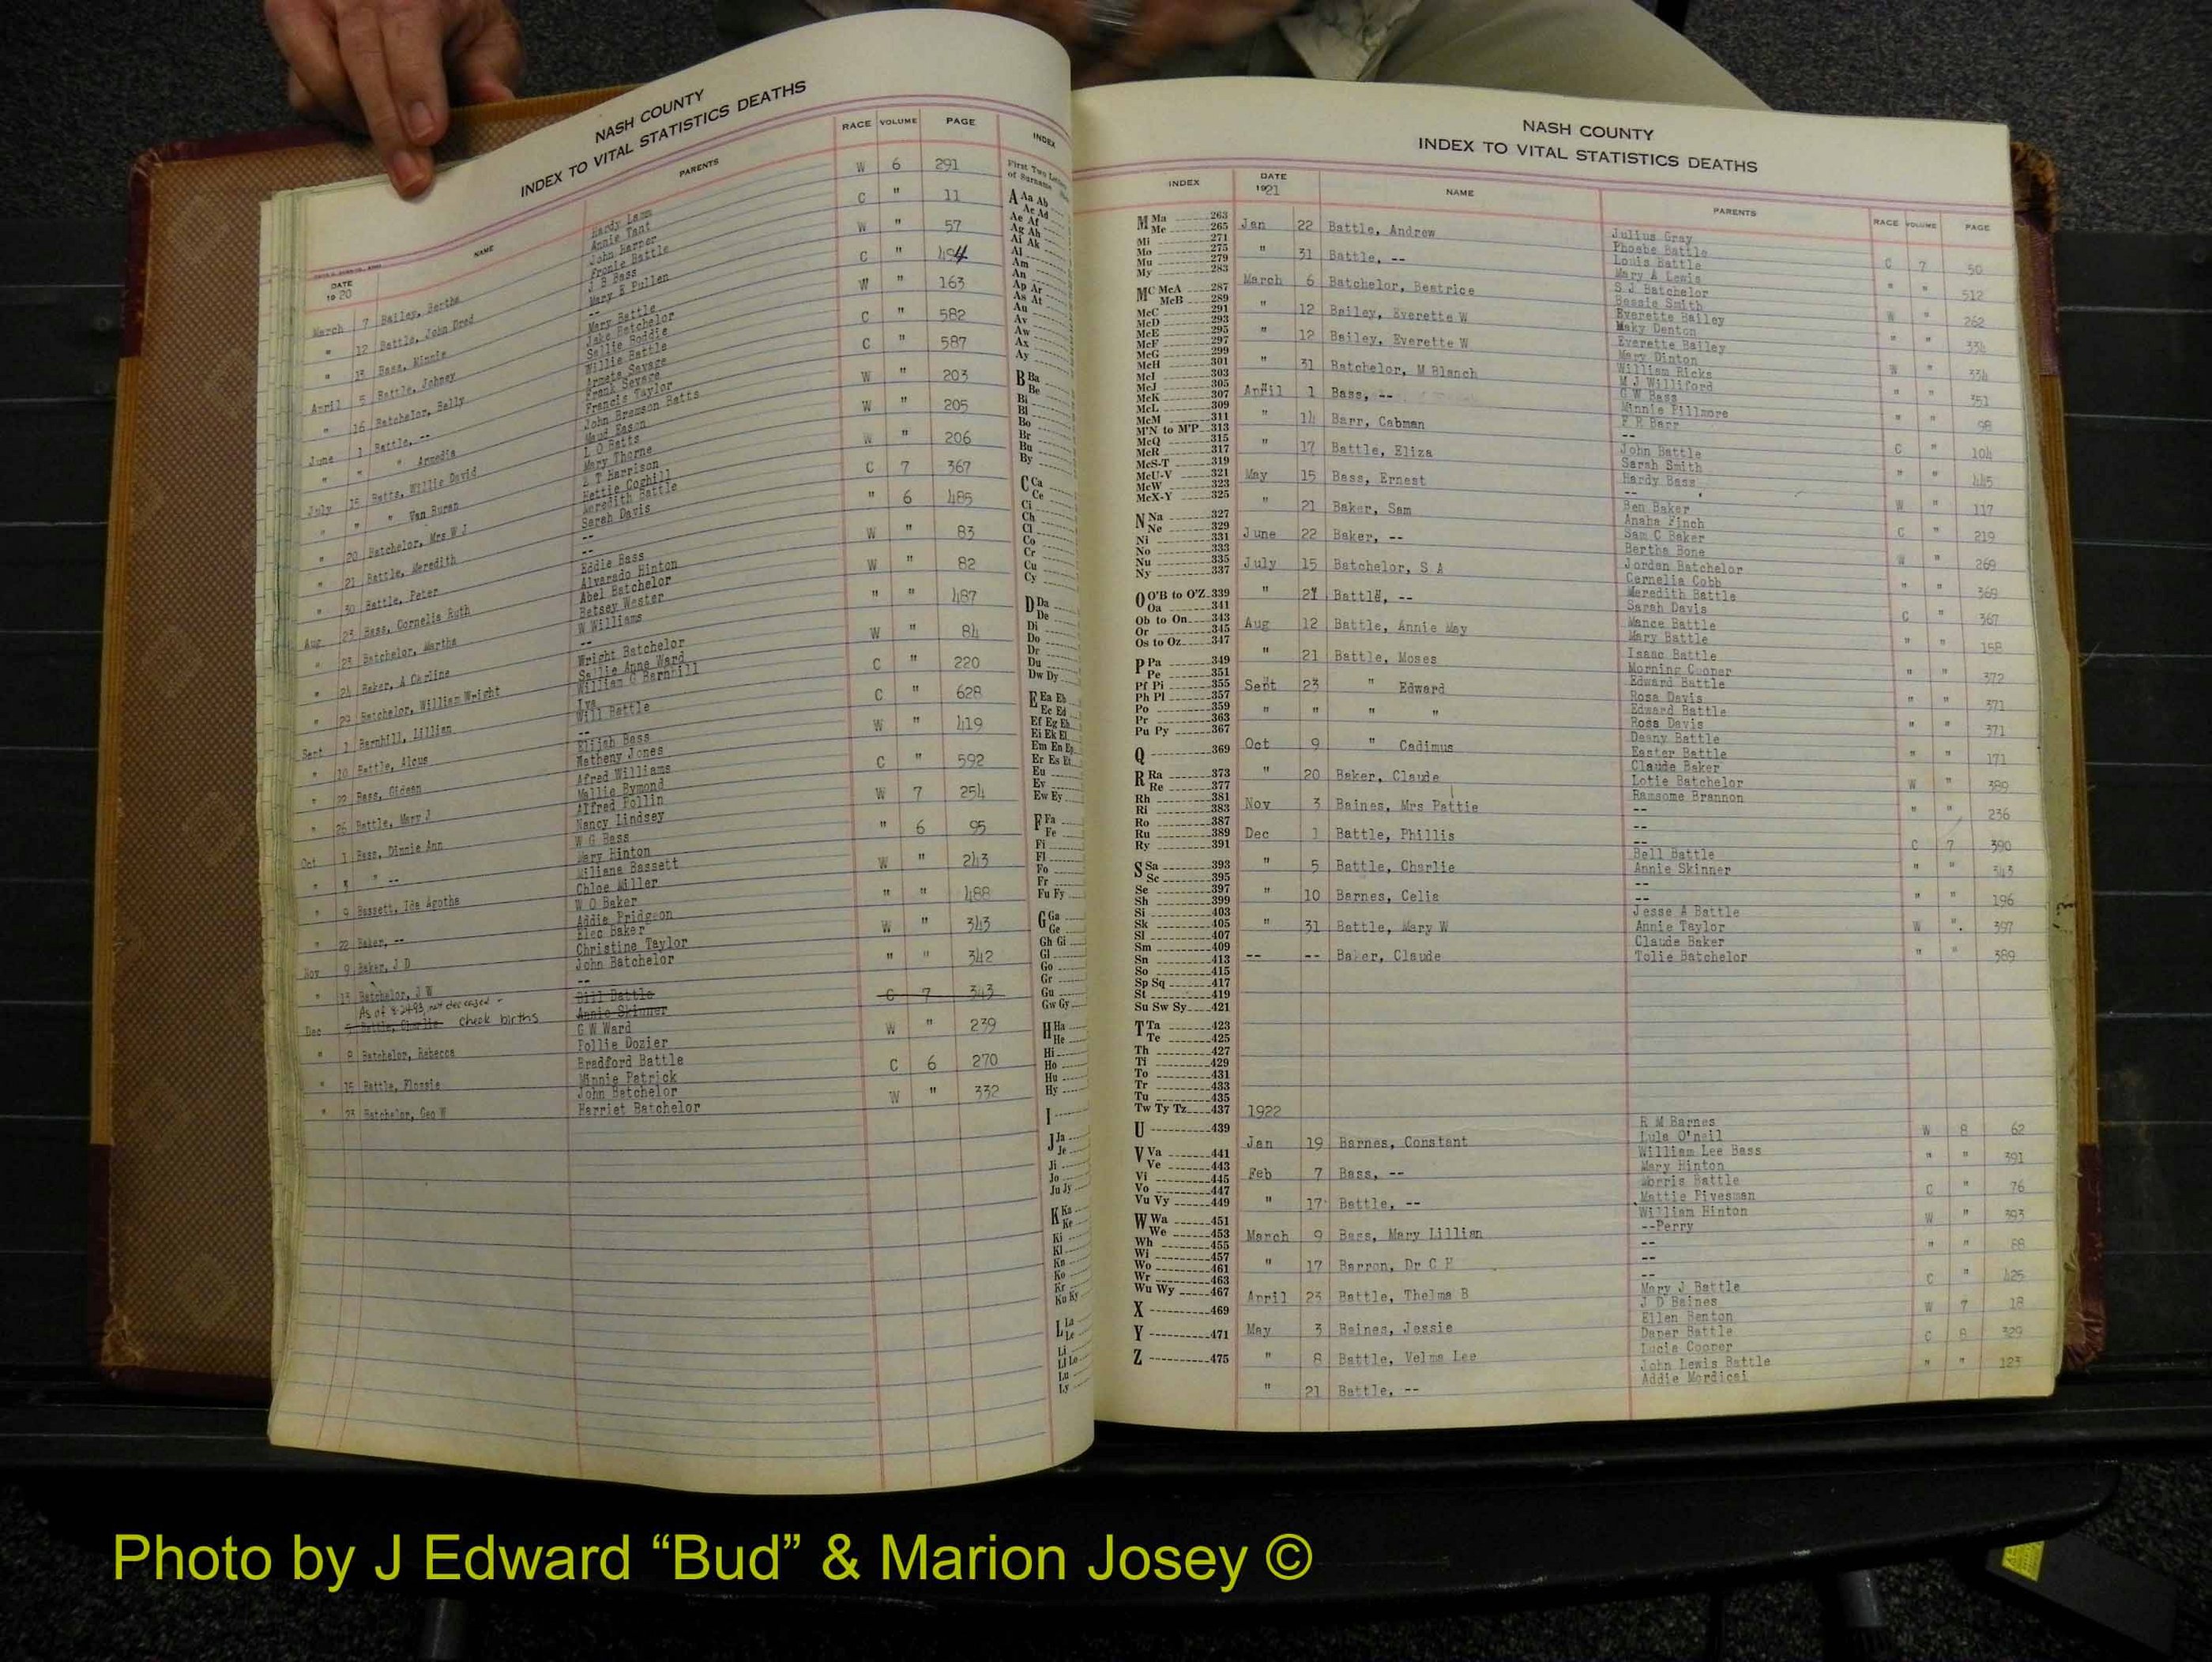 NASH COUNTY
INDEX TO VITAL STATISTICS DEATHS
DATE 1920 NAME PARENTS RACE VOLUME PAGE INDEX
March 7 Bailey, Bertha Hardy Lamm W 6 291
Annie Tant
" 12 Battle, John Dred John Harper C " 11
Fronie Battle
" 13 Bass, Minnie J B Bass W " 57
Mary E Pullen
April 5 Battle, Johney -- C " 494
Mary Battle
" 16 Batchelor, Belly Jake Batchelor W " 163
Sallie Boddie
June 1 Battle, -- Willie Battle C " 582
Armeta Savage
" " " Armedia Frank Savage C " 587
Francis Taylor
July 15 Batts, Willie David John Branson Batts W " 203
Maud Eason
" " " Van Buran L O Batts W " 205
Mary Thorne
" 20 Batchelor, Mrs W J E T Harrison W " 206
Hettie Coghill
" 21 Battle, Meredith Meredith Battle C 7 367
Sarah Davis
" 30 Battle, Peter -- " 6 485
--
Aug 23 Bass, Cornelia Ruth Eddie Bass W " 83
Alvarado Hinton
" 23 Batchelor, Martha Abel Batchelor W " 82
Betsey Wester
" 24 Baker, A Carline W Williams " " 487
--
" 29 Batchelor, William Wright Wright Batchelor W " 84
Sallie Anna Ward
Sept 1 Barnhill, Lillian William G Barnhill C " 220
Iva
" 10 Battle, Alous Will Battle C " 628
--
" 22 Bass, Gidean Elijah Bass W " 419
Matheny Jones
" 26 Battle, Mary J Afred Williams C " 592
Mallie Bymond
Oct 1 Bass, Dinnie Ann Alfred Pollin W 7 254
Nancy Lindsey
" " -- W G Bass " 6 95
Mary Hinton
" 9 Bassett, Ida Agotha Miliana Bassett W " 243
Chloe Miller
" 22 Baker, -- W O Baker " " 488
Addie Pridgeon
Nov 9 Baker, J D Elec Baker W " 343
Christine Taylor
" 13 Batchelor, J W John Batchelor " " 342
--
As of 8-24-93, not deceased -
Dec 5 Battle, Charlie check births Bill Battle C 7 343
Annie Skinner
" 8 Batchelor, Rebecca G W Ward W " 239
Pollie Dozier
" 15 Battle, Flossie Bradford Battle C 6 270
Minnie Patrick
" 23 Batchelor, Geo W John Batchelor W " 332
Harriet Batchelor
First Two Letters
of Surname
A Aa Ab
Ac Ad
Ae Af
Ag Ah
Ai Ak
Al
Am
An
Ap Ar
As At
Au
Av
Aw
Ax
Ay
B Ba
Be
Bi
Bl
Bo
Br
Bu
By
C Ca
Ce
Ci
Ch
Cl
Co
Cr
Cu
Cy
D Da
De
Di
Do
Dr
Du
Dw Dy
E Ea Eb
Ec Ed
Ef Eg Eh
Ei Ek El
Em En Ep
Er Es Et
Eu
Ev
Ew Ey
F Fa
Fe
Fi
Fl
Fo
Fr
Fu Fy
G Ga
Ge
Gh Gi
Gl
Go
Gr
Gu
Gw Gy
H Ha
He
Hi
Ho
Hu
Hy
I
J Ja
Je
Ji
Jo
Ju Jy
K Ka
Ke
Ki
Kl
Kn
Ko
Kr
Ku Ky
L La
Le
Li
Ll Lo
Lu
Ly
NASH COUNTY
INDEX TO VITAL STATISTICS DEATHS
INDEX DATE 1921 NAME PARENTS RACE VOLUME PAGE
M Ma 263
Me 265
Mi 271
Mo 275
Mu 279
My 283
Mc McA 287
McB 289
McC 291
McD 293
McE 295
McF 297
McG 299
McH 301
McI 303
McJ 305
McK 307
McL 309
McM 311
M'N to M'P 313
McQ 315
McR 317
McS-T 319
McU-V 321
McW 323
McX-Y 325
N Na 327
Ne 329
Ni 331
No 333
Nu 335
Ny 337
O O'B to O'Z 339
Oa 341
Ob to On 343
Or 345
Os to Oz 347
P Pa 349
Pe 351
Pf Pi 355
Ph Pl 357
Po 359
Pr 363
Pu Py 367
Q 369
R Ra 373
Re 377
Rh 381
Ri 383
Ro 387
Ru 389
Ry 391
S Sa 393
Sc 395
Se 397
Sh 399
Si 403
Sk 405
Sl 407
Sm 409
Sn 413
So 415
Sp Sq 417
St 419
Su Sw Sy 421
T Ta 423
Te 425
Th 427
Ti 429
To 431
Tr 433
Tu 435
Tw Ty Tz 437
U 439
V Va 441
Ve 443
Vi 445
Vo 447
Vu Vy 449
W Wa 451
We 453
Wh 455
Wi 457
Wo 461
Wr 463
Wu Wy 467
X 469
Y 471
Z 475
Jan 22 Battle, Andrew Julius Gray C 7 50
Phoebe Battle
" 31 Battle, -- Louis Battle " " 512
Mary A Lewis
March 6 Batchelor, Beatrice S J Batchelor W " 262
Bessie Smith
" 12 Bailey, Everette W Everette Bailey " " 334
Maky Denton
" 12 Bailey, Everette W Everette Bailey W " 334
Mary Dinton
" 31 Batchelor, M Blanch William Ricks " " 351
M J Williford
April 1 Bass, -- G W Bass " " 98
Minnie Pillmore
" 14 Barr, Cabman F H Barr C " 104
--
" 17 Battle, Eliza John Battle " " 445
Sarah Smith
May 15 Bass, Ernest Hardy Bass W " 117
--
" 21 Baker, Sam Ben Baker C " 219
Anaha Finch
June 22 Baker, -- Sam C Baker W " 269
Bertha Bone
July 15 Batchelor, S A Jordan Batchelor " " 369
Cernelia Cobb
" 21 Battle, -- Meredith Battle C " 367
Sarah Davis
Aug 12 Battle, Annie May Mance Battle " " 158
Mary Battle
" 21 Battle, Moses Isaac Battle " " 372
Morning Cooper
Sept 23 " Edward Edward Battle " " 371
Rosa Davis
" " " " Edward Battle " " 371
Rosa Davis
Oct 9 " Cadimus Deany Battle " " 171
Easter Battle
" 20 Baker, Claude Claude Baker W " 389
Lotie Batchelor
Nov 3 Baines, Mrs Pattie Ransome Brannon " " 236
--
Dec 1 Battle, Phillis -- C 7 390
--
" 5 Battle, Charlie Bell Battle " " 343
Annie Skinner
" 10 Barnes, Celia -- " " 196
--
" 31 Battle, Mary W Jesse A Battle W " 397
Annie Taylor
-- -- Baker, Claude Claude Baker " " 389
Tolie Batchelor
1922
Jan 19 Barnes, Constant R M Barnes W 8 62
Lula O'neil
Feb 7 Bass, -- William Lee Bass " " 391
Mary Hinton
" 17 Battle, -- Morris Battle C " 76
Mattie Fivesman
March 9 Bass, Mary Lillian William Hinton W " 393
--Perry
" 17 Barron, Dr C H -- " " 88
--
April 23 Battle, Thelma B -- C " 425
Mary J Battle
May 3 Baines, Jessie J D Baines W 7 18
Ellen Benton
" 8 Battle, Velma Lee Daner Battle C 8 329
Lucia Cooper
" 21 Battle, -- John Lewis Battle " " 123
Addie Mordicai
Photo by J Edward “Bud” & Marion Josey ©